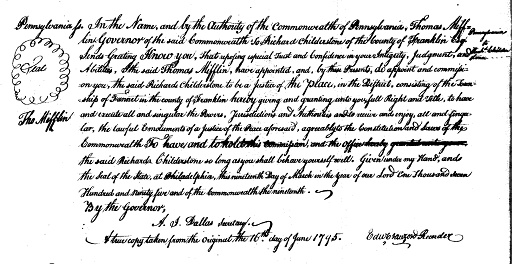 Pennsylvania Ss. In the Name, and by the Authority of the Commonwealth of Pennsylvania, Thomas Miff-
lin Governor of the said Commonwealth To Richard Childerstone of the County of Franklin Esqr
Sends Greeting Know you, That reposing special Trust and Confidence in your Integrity, Judgment, and
Abilities, I the said Thomas Mifflin, have appointed, and, by these Presents, do appoint and commissi-
on you, the said Richard Childerstone to be a Justice of the Peace, in the District, consisting of the Town-
ship of Fannet in the County of Franklin hereby giving and granting unto you full Right and Title, to have
and execute all and singular the Powers, Jurisdictions and Authorities and to receive and enjoy, all and singu-
lar, the lawful Emoluments of a Justice of the Peace aforesaid, agreeably to the Constitution and Laws of the
Commonwealth To have and to hold this commission, and the Office hereby granted
the said Richard Childerstone so long as you shall behave yourself well. Given under my Hand, and
the Seal of the State, at Philadelphia, this nineteenth Day of March in the Year of our Lord One Thousand Seven
Hundred and Ninety five and of the Commonwealth the nineteenth.
By the Governor,
A. J. Dallas Secretary.
A true copy taken from the original the 16th day of June 1795. Edw Crawford Recorder
Seal
Tho Mifflin
Pennsylvania
to